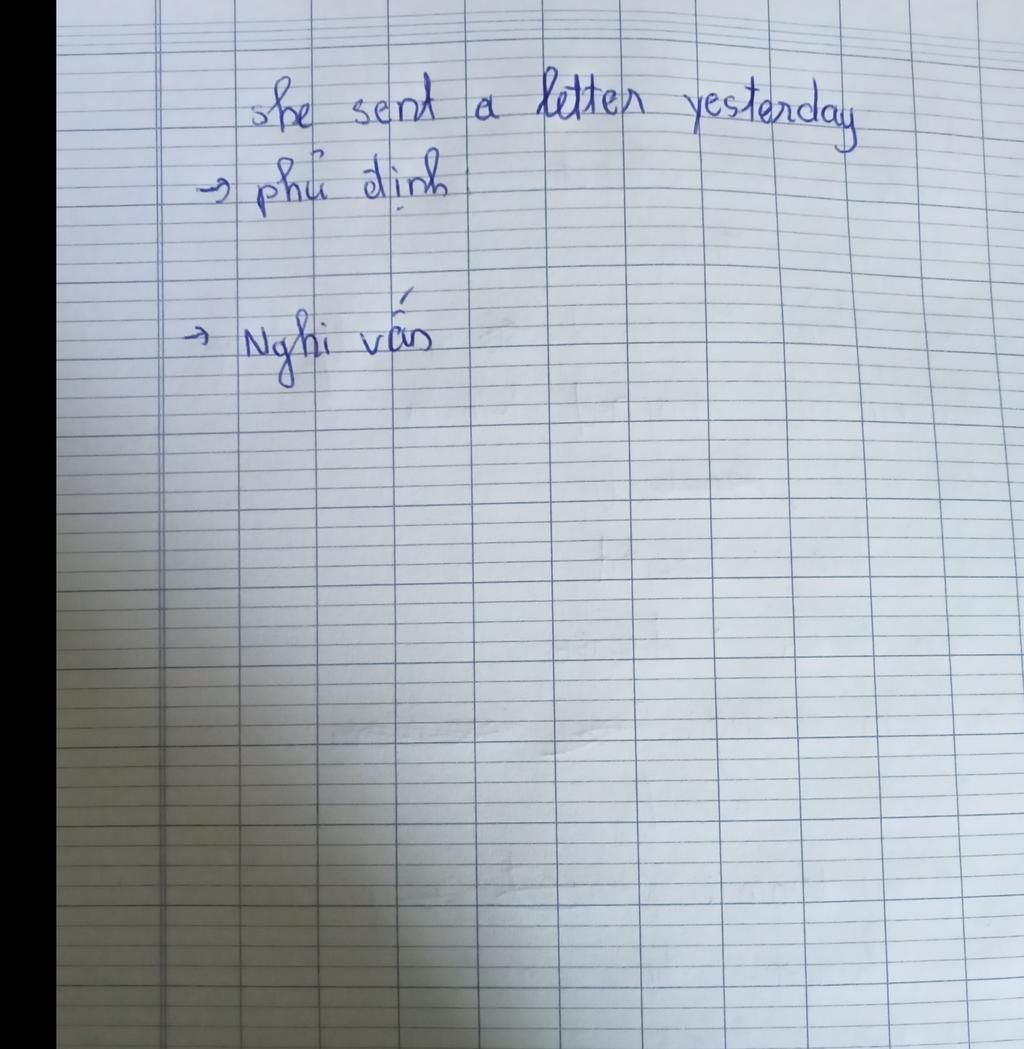 she sent a letter yesterday
→ phủ định
→ Nghi vấn